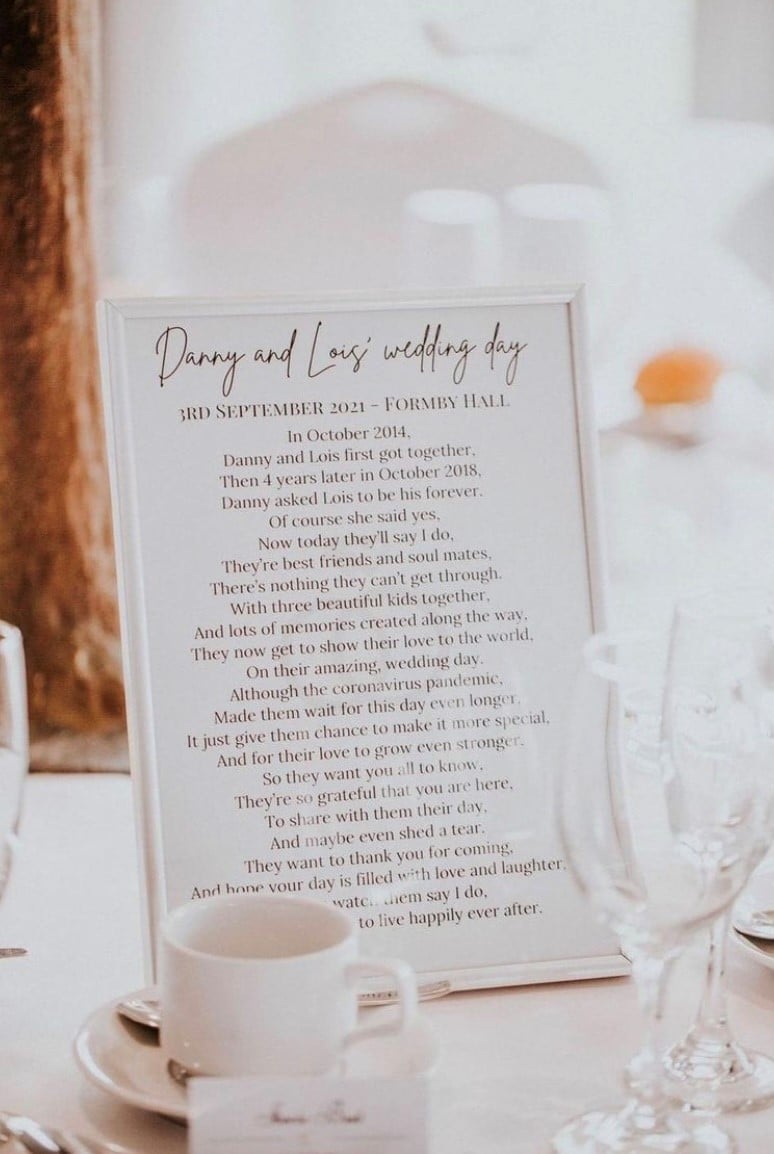 Danny and Lois' wedding day
3RD SEPTEMBER 2021 – FORMBY HALL
In October 2014,
Danny and Lois first got together,
Then 4 years later in October 2018,
Danny asked Lois to be his forever.
Of course she said yes,
Now today they'll say I do,
They're best friends and soul mates,
There's nothing they can't get through.
With three beautiful kids together,
And lots of memories created along the way,
They now get to show their love to the world,
On their amazing, wedding day.
Although the coronavirus pandemic,
Made them wait for this day even longer,
It just give them chance to make it more special,
And for their love to grow even stronger.
So they want you all to know,
They're so grateful that you are here,
To share with them their day,
And maybe even shed a tear.
They want to thank you for coming,
And hope your day is filled with love and laughter,
watch them say I do,
to live happily ever after.